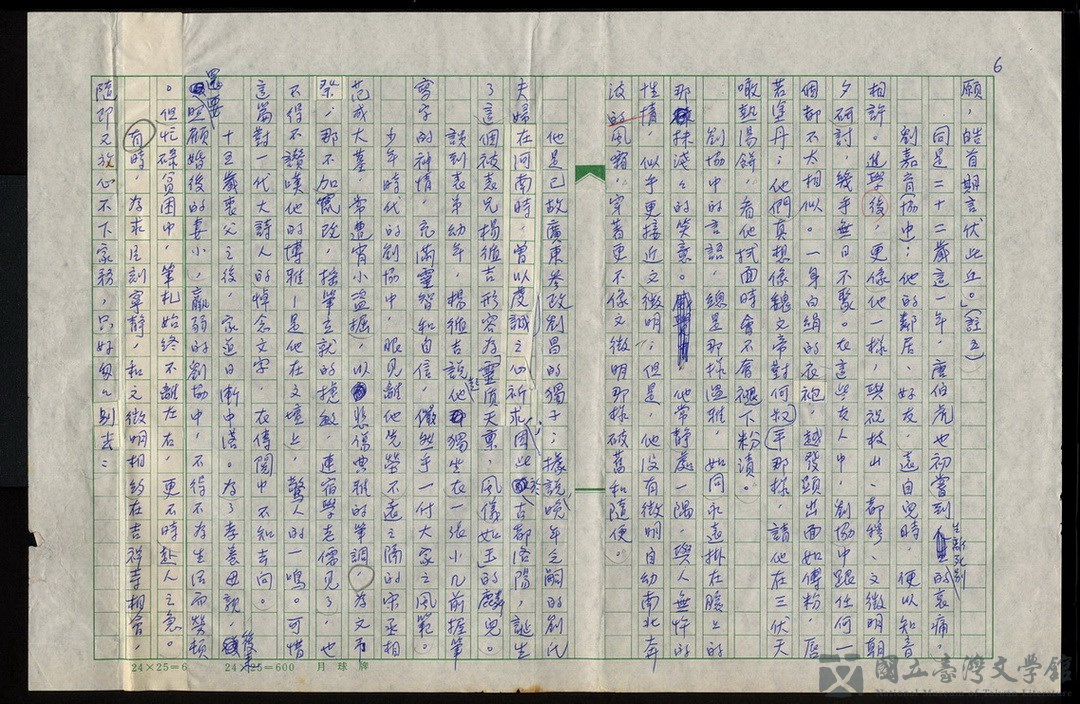 6
願，皓首期言伏此丘。」（註五）
同是二十二歲這一年，唐伯虎也初嘗到生離死別的哀痛。
劉嘉育（協中），他的鄰居、好友，遠自兒時，便以知音
相許。進學後，更像他一樣，與祝枝山、都穆、文徵明朝
夕研討，幾乎無日不聚。在這些友人中，劉協中跟任何一
個都不大相似。一身白絹的衣袍，越發顯出面如傅粉，唇
若塗丹；他們真想像魏文帝對何晏（平那樣，請他在三伏天
噉熱湯餅，看他拭面時會不會褪下粉漬。
劉協中的言語，總是那樣溫雅，如同永遠掛在臉上的
那抹淺淺的笑意。他常靜處一隅，與人無忤的
性情，似乎更接近文徵明；但是，他沒有徵明自幼南北奔
波的風霜，穿著更不像文徵明那樣破舊和隨便。
他是已故廣東參政劉昌的獨子；據說，晚年乏嗣的劉氏
夫婦在河南時，曾以虔誠之心祈求，因此於古都洛陽，誕生
了這個被表兄楊循吉形容為靈質天稟，風儀如玉的麟兒。
談到表弟幼年，楊循吉說起他獨坐在一張小几前握筆
寫字的神情，充滿靈智和自信，儼然乎一付大家之風範。
少年時代的劉協中，眼見離他先塋不遠之隔的宋丞相
范成大墓，常遭宵小溫掘，以悲傷典雅的筆調，為文而
祭；那不加竄改，搖筆立就的捷敏，連宿學老儒見了，也
不得不讚嘆他的博雅－是他在文壇上，驚人的一鳴。可惜
這篇對一代大詩人的悼念文字，在傳閱中不知去向。
十五歲喪父之後，家道日漸中落。為了孝養母親，後來
還要照顧婚後的妻小，羸弱的劉協中，不得不為生活而勞頓
。但忙碌貧困中，筆札始終不離左右，更不時赴人之急。
有時，為求片刻寧靜，和文徵明相約在吉祥寺相會，
隨即又放心不下家務，只好匆匆別去；
24×25=6
24×25=600 月球牌
國立臺灣文學館
National Museum of Taiwan Literature